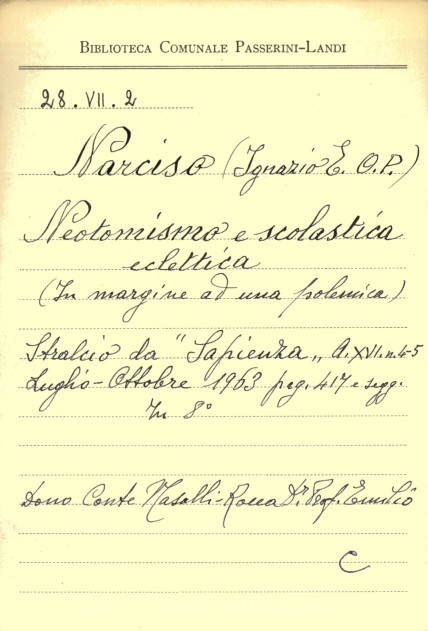 BIBLIOTECA COMUNALE PASSERINI-LANDI
28. VII. 2
Narciso (Ignazio E. O.P.)
Neotomismo e scolastica
eclettica
(In margine ad una polemica)
Stralcio da "Sapienza" A. XVI. n. 4-5
Luglio-Ottobre 1963 pag. 417 e segg.
In 8°
Dono Conte Nasalli-Rocca Dr. Prof. Emilio
C